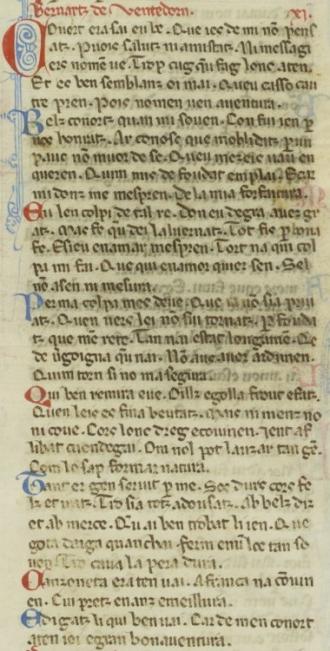 Bernartz de Ventedorn. .xi.
COnort era sai eu be. Que ies de mi no pens
atz. Puois salutz ni amistatz. Ni messagi
ers nomen ve. Trop cug qu fag lonc aten.
Et er ben semblanz oi mai. Queu casso cau
tre pren. Pois nomen uen auentura.
Bels conort quan mi souen. Con fui ien p
uos honratz. Ar conosc que moblidatz. p un
pauc no muor de se. Queu mezeis uau en
queren. Quim me de foudat em plai. Ecar
midonz me mespren. De la mia forfaitura.
Eu len colpi de tal re. Don eu degra auer gr
at. Mas fe qu dei laluernatz. Tot fis p bona
fe. Esieu enamar mespren. Tort na quim col
pa mi fai. Que qui enamor quier sen. Sel
no a sen ni mesura.
Per ma colpa mes deue. Que ia no sia priu
atz. Quen vers lei no sui tornatz. p fouda
tz que me rete. Tan nai estat longamen. Qe
de ugoigna qu nai. Non aus auer ardimen.
Quim torn si no masegura.
Qui ben remira eue. Oillz egolla front efatz.
Quen leis es fina beutatz. Mais ni menz no
ni coue. Cors lonc dreg ecouinen. Ient af
libat cuendegai. Om nol pot lauzar tan gē.
Com lo sap formar natura.
Tant er gen seruit p me. Sos durs cors fe
ls et iratz. Tro sia totz adousatz. Ab bels dir
et ab merce. Quai ben trobat li ien. Que
gota daiga quan chai. ferm enu loc tan so
uen. Tro caua la pera dura.
Canzoneta era ten uai. A francs na couin
en. Cui pretz enanz emeillura.
Edigatz li qui ben uai. Car de mon conort
aten ioi egran bonauentura.